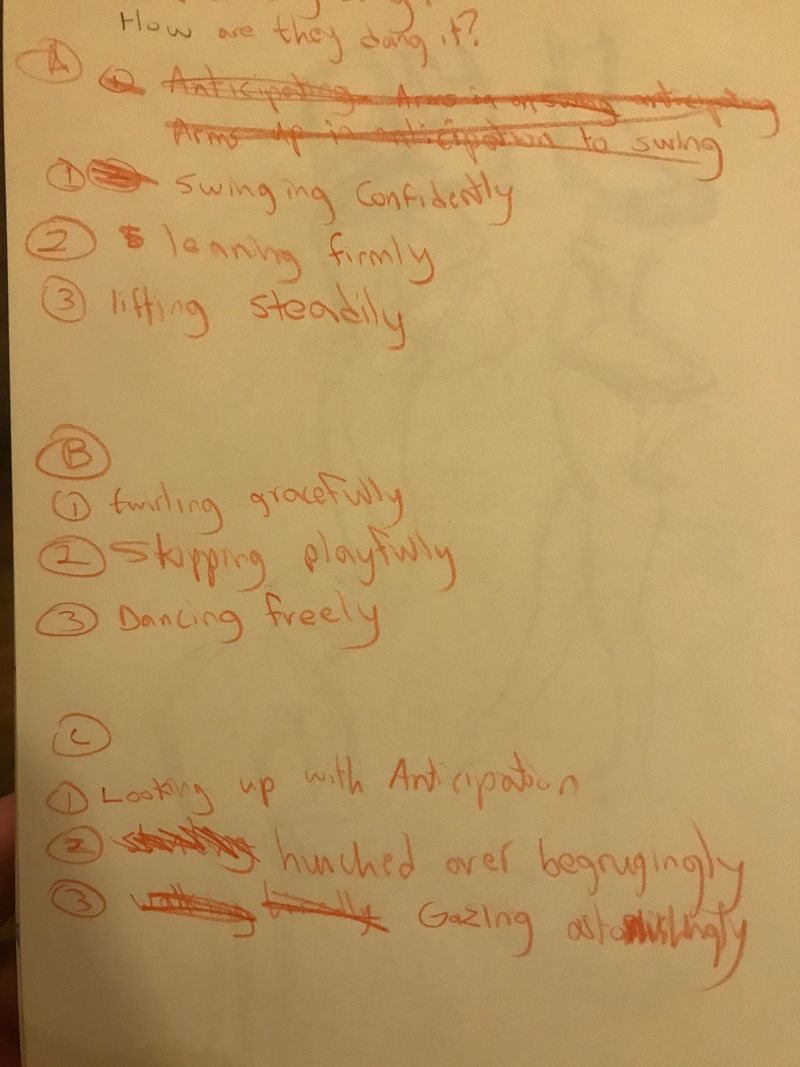 How are they doing it?
A
① Anticipating Arms in an swing anticipating
Arms up in anticipation to swing
① Swinging Confidently
② leaning firmly
③ lifting steadily
B
① twirling gracefully
② Skipping playfully
③ Dancing freely
C
① Looking up with Anticipation
② hunched over begrugingly
③ Gazing astonishingly